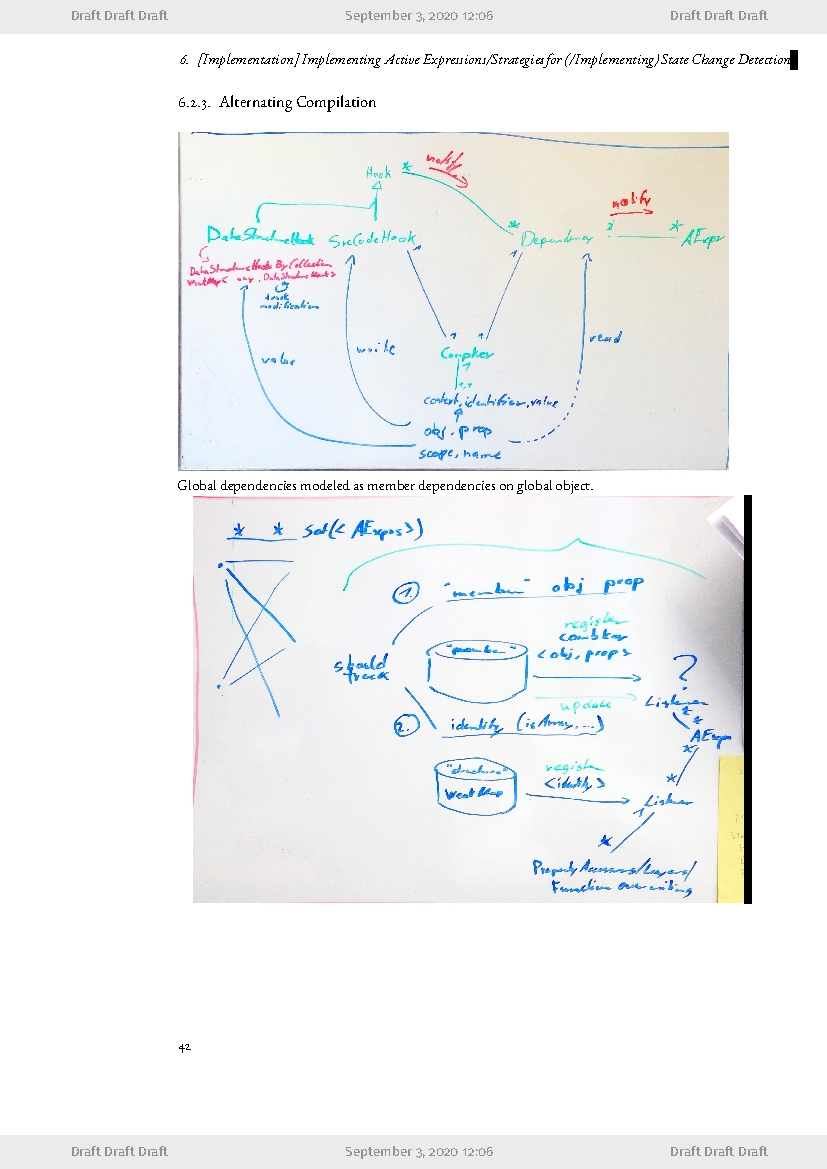 Draft Draft Draft September 3, 2020 12:06 Draft Draft Draft
6. [Implementation] Implementing Active Expressions/Strategies for (/Implementing) State Change Detection
6.2.3. Alternating Compilation
Hook
* notify
*
notify
DataStructureHook SrcCodeHook Dependency * AExpr
DataStructureHooks By Collection
WeakMap< any, DataStructureHook>
track
modification
value
write
read
CompKey
1
1,1
context, identifier, value
obj, prop
scope, name
Global dependencies modeled as member dependencies on global object.
* * Set(<AExprs>)
1. "member" obj prop
register
combKey
<obj, prop>
"member"
should
track
?
update
Listener
*
*
AExp
*
2. identity (isArray, ...)
"structure"
WeakMap
register
<identity>
*
Listener
*
Property Accessors/Layers/
Function overwriting
42
Draft Draft Draft September 3, 2020 12:06 Draft Draft Draft